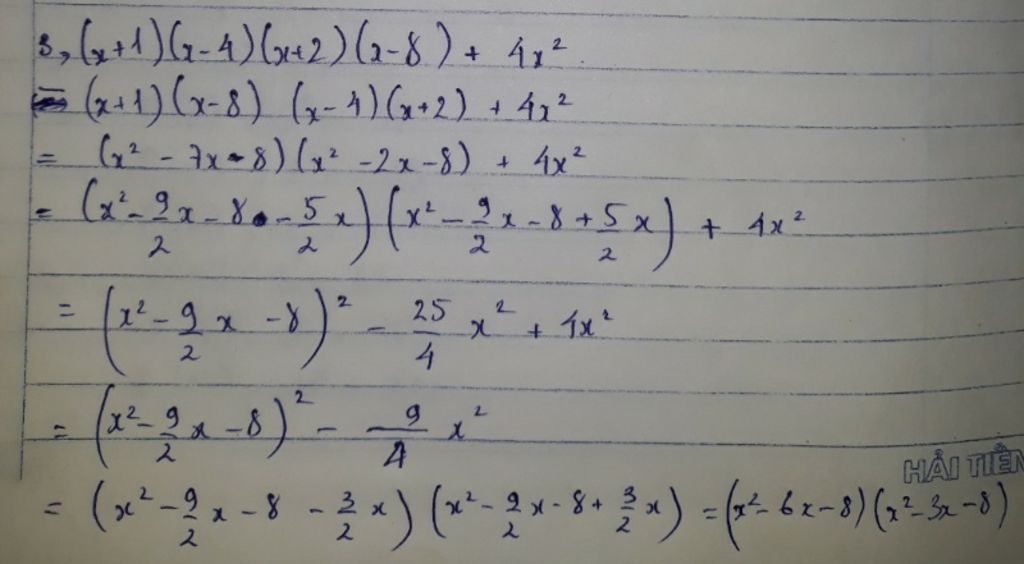 3, (x+1)(x-4)(x+2)(x-8) + 4x²
= (x+1)(x-8) (x-4)(x+2) + 4x²
= (x² - 7x - 8)(x² - 2x - 8) + 4x²
= (x² - 9/2 x - 8 - 5/2 x)(x² - 9/2 x - 8 + 5/2 x) + 4x²
= (x² - 9/2 x - 8)² - 25/4 x² + 4x²
= (x² - 9/2 x - 8)² - 9/4 x²
HẢI TIẾN
= (x² - 9/2 x - 8 - 3/2 x)(x² - 9/2 x - 8 + 3/2 x) = (x² - 6x - 8)(x² - 3x - 8)